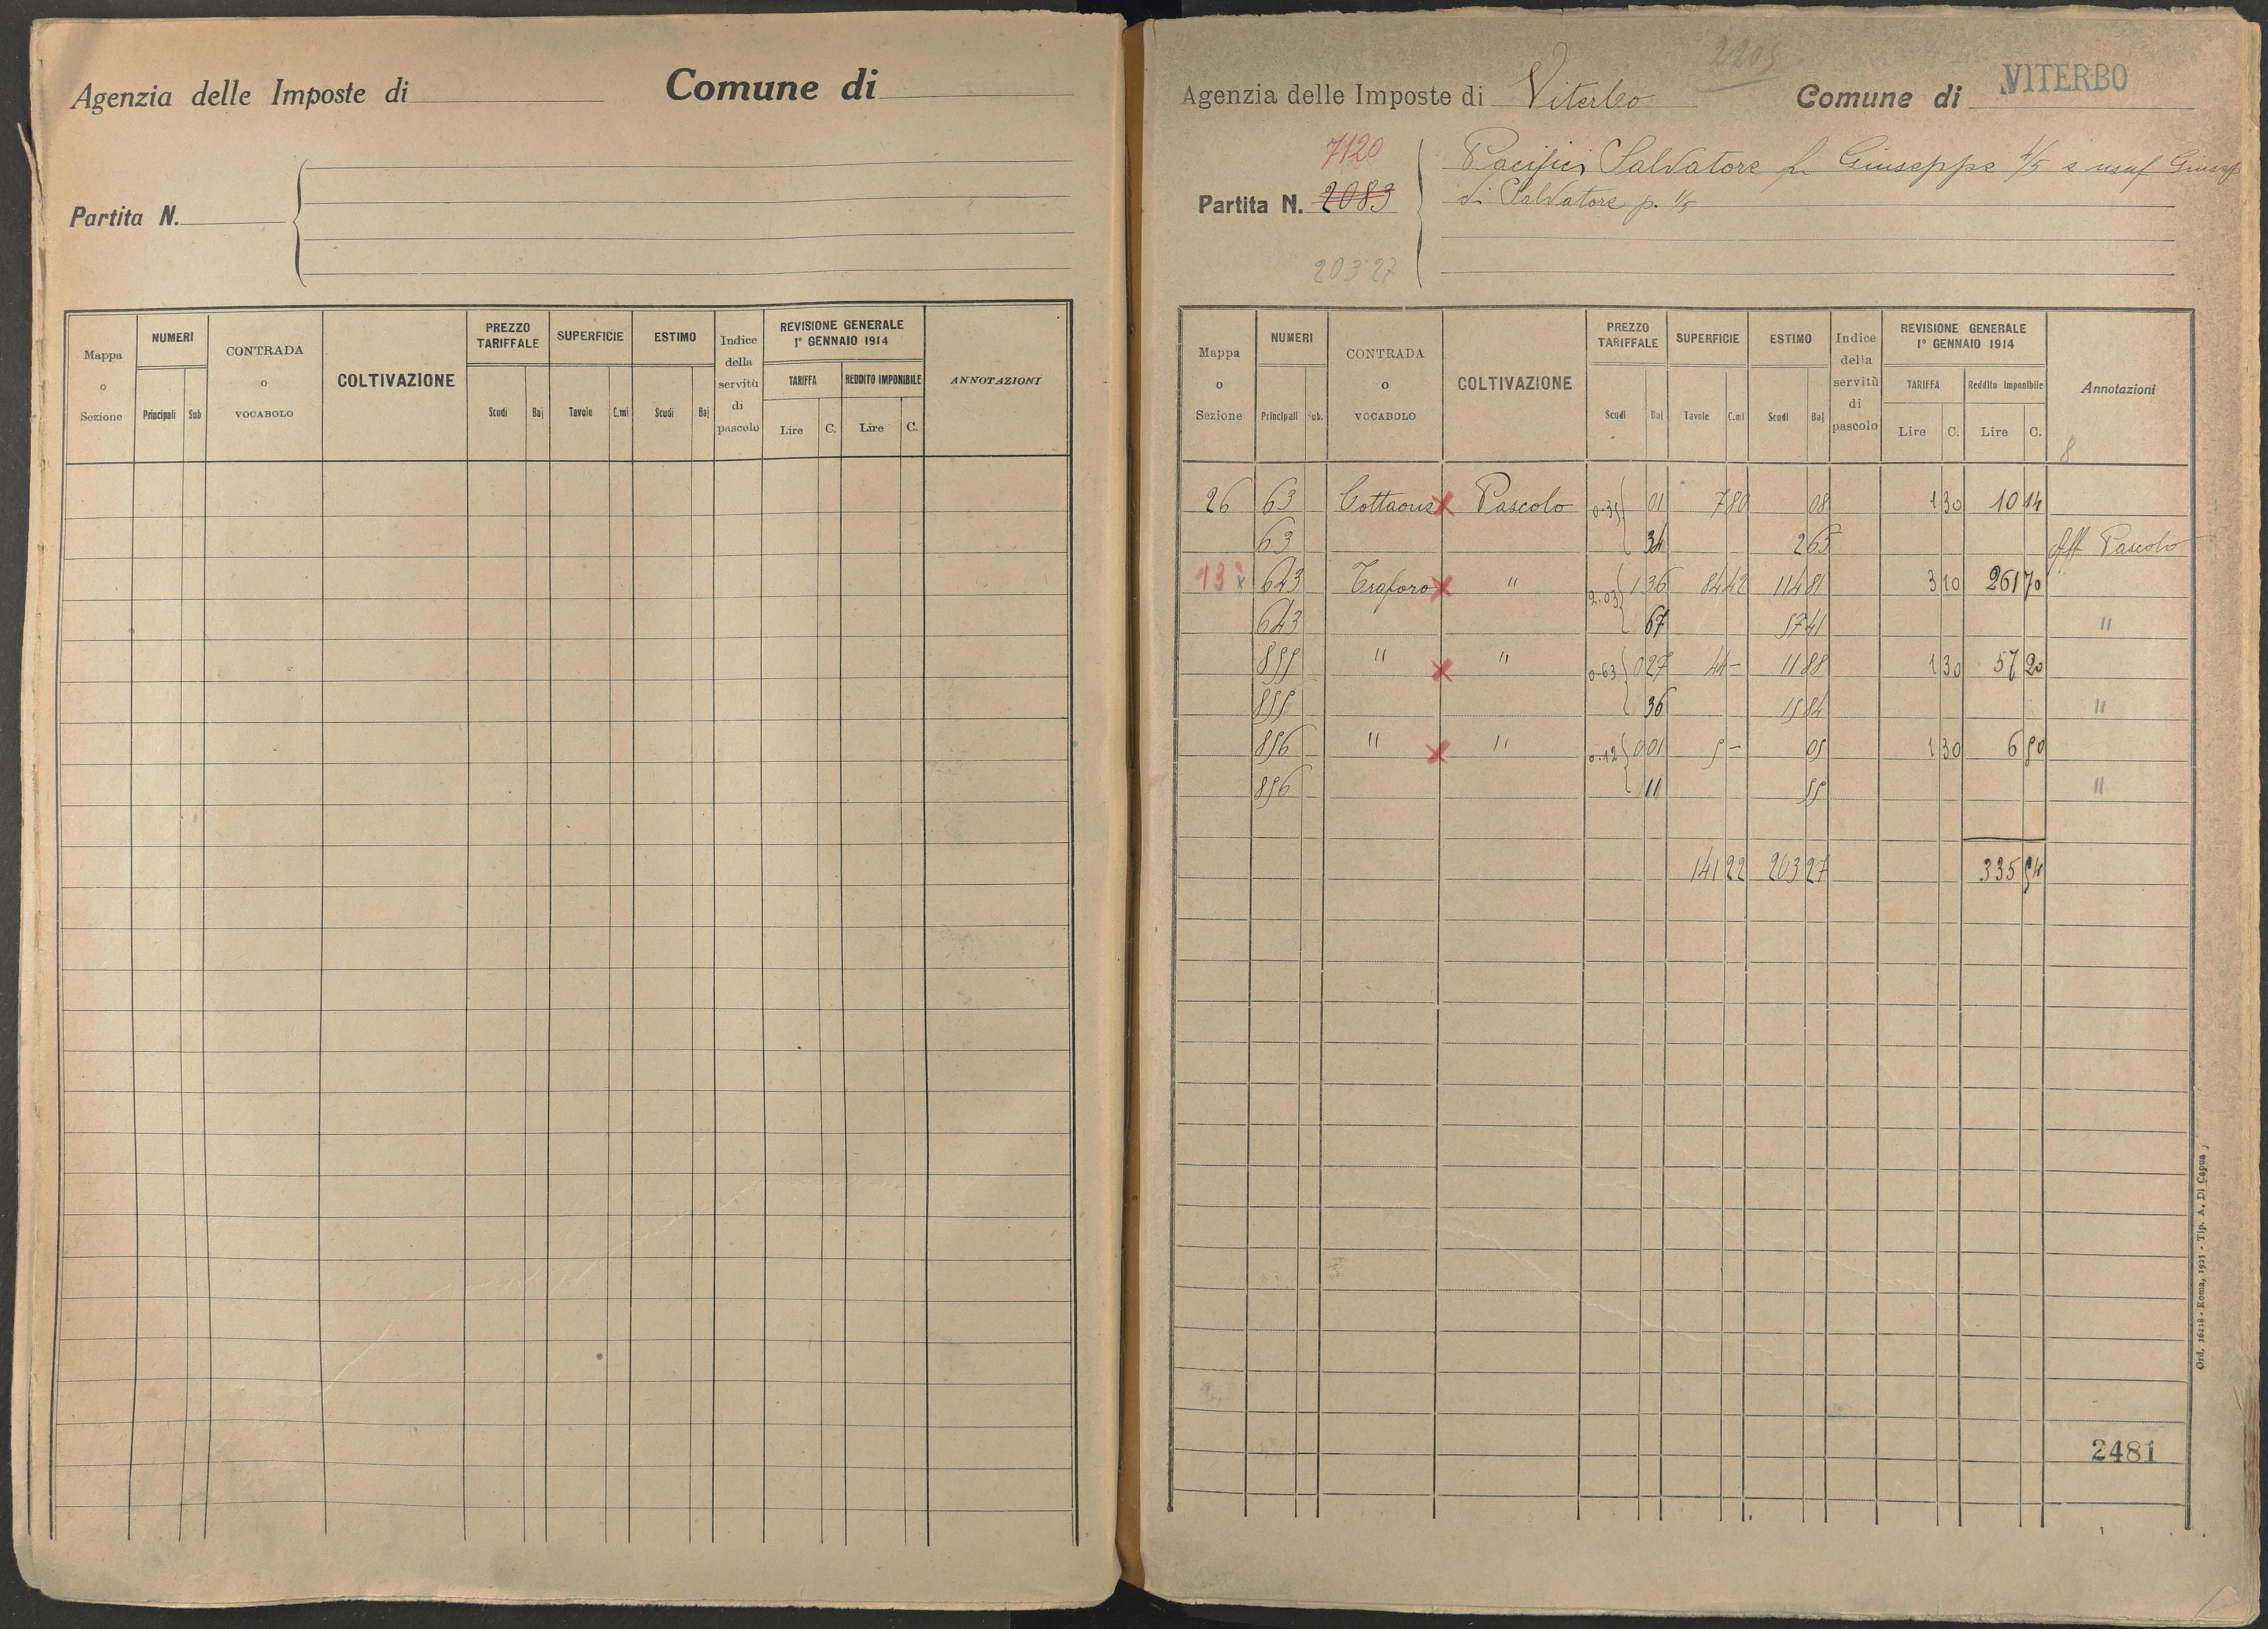 Agenzia delle Imposte di Comune di
Partita N.
Mappa o Sezione NUMERI Principali Sub CONTRADA o VOCABOLO COLTIVAZIONE PREZZO TARIFFALE Scudi Baj SUPERFICIE Tavole C.mi ESTIMO Scudi Baj Indice della servitù di pascolo REVISIONE GENERALE 1° GENNAIO 1914 TARIFFA Lire C. REDDITO IMPONIBILE Lire C. ANNOTAZIONI
2205
Agenzia delle Imposte di Viterbo Comune di VITERBO
7120
Partita N. 2083
Pacifici Salvatore fu Giuseppe 4/5 e usuf Giusep
di Salvatore p. 1/5
203 27
Mappa o Sezione NUMERI Principali Sub. CONTRADA o VOCABOLO COLTIVAZIONE PREZZO TARIFFALE Scudi Baj SUPERFICIE Tavole C.mi ESTIMO Scudi Baj Indice della servitù di pascolo REVISIONE GENERALE 1° GENNAIO 1914 TARIFFA Lire C. Reddito Imponibile Lire C. Annotazioni
8
26 63 Cottaone x Pascolo 0.35 { 01 7 80 08 1 30 10 14
63 34 2 65 Aff Pascolo
13 x 643 Traforo x " 2.03 { 1 36 84 42 114 81 3 10 261 70
643 67 57 41 "
855 " x " 0.63 { 0 27 44 – 11 88 1 30 57 20
855 36 15 84 "
856 " x " 0.12 { 0 01 5 – 05 1 30 6 50
856 11 55 "
141 22 203 27 335 54
2481
Ord. 16118 - Roma, 1923 - Tip. A. Di Capua